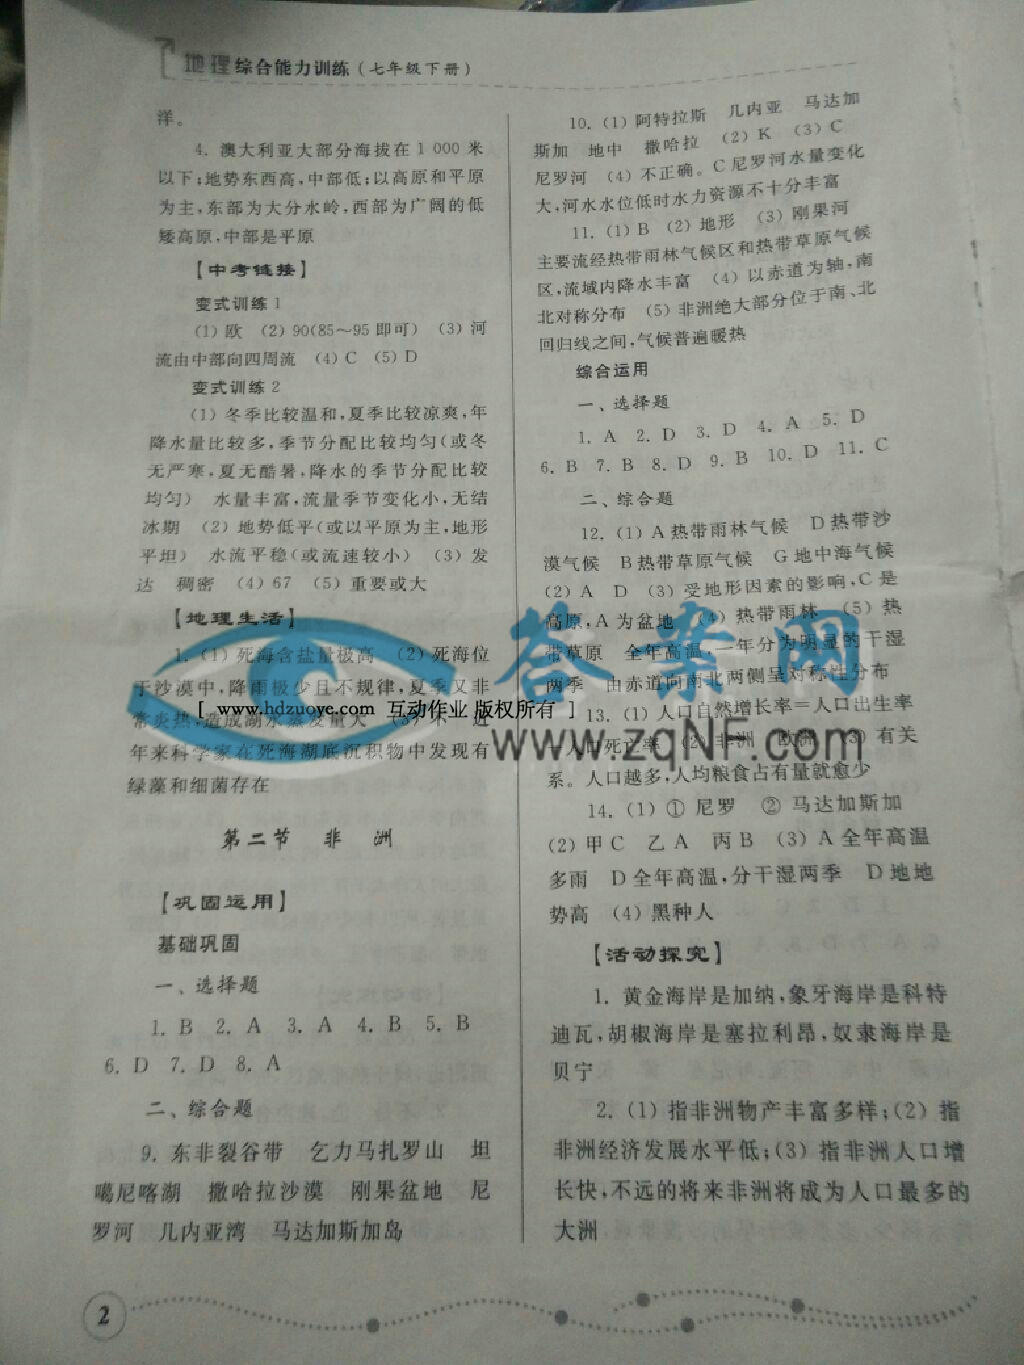 地理 综合能力训练(七年级下册)
洋。
4. 澳大利亚大部分海拔在1 000 米
以下;地势东西高,中部低;以高原和平原
为主,东部为大分水岭,西部为广阔的低
矮高原,中部是平原
【中考链接】
变式训练1
(1) 欧 (2) 90(85～95 即可) (3) 河
流由中部向四周流 (4) C (5) D
变式训练2
(1) 冬季比较温和,夏季比较凉爽,年
降水量比较多,季节分配比较均匀(或冬
无严寒,夏无酷暑,降水的季节分配比较
均匀) 水量丰富,流量季节变化小,无结
冰期 (2) 地势低平(或以平原为主,地形
平坦) 水流平稳(或流速较小) (3) 发
达 稠密 (4) 67 (5) 重要或大
【地理生活】
1. (1) 死海含盐量极高 (2) 死海位
于沙漠中,降雨极少且不规律,夏季又非
常炎热,造成湖水蒸发量大 (3) 不 近
年来科学家在死海湖底沉积物中发现有
绿藻和细菌存在
第二节 非 洲
【巩固运用】
基础巩固
一、选择题
1. B 2. A 3. A 4. B 5. B
6. D 7. D 8. A
二、综合题
9. 东非裂谷带 乞力马扎罗山 坦
噶尼喀湖 撒哈拉沙漠 刚果盆地 尼
罗河 几内亚湾 马达加斯加岛
10. (1) 阿特拉斯 几内亚 马达加
斯加 地中 撒哈拉 (2) K (3) C
尼罗河 (4) 不正确。C尼罗河水量变化
大,河水水位低时水力资源不十分丰富
11. (1) B (2) 地形 (3) 刚果河
主要流经热带雨林气候区和热带草原气候
区,流域内降水丰富 (4) 以赤道为轴,南
北对称分布 (5) 非洲绝大部分位于南、北
回归线之间,气候普遍暖热
综合运用
一、选择题
1. A 2. D 3. D 4. A 5. D
6. B 7. B 8. D 9. B 10. D 11. C
二、综合题
12. (1) A热带雨林气候 D热带沙
漠气候 B热带草原气候 G地中海气候
(2) A D (3) 受地形因素的影响,C是
高原,A为盆地 (4) 热带雨林 (5) 热
带草原 全年高温,一年分为明显的干湿
两季 由赤道向南北两侧呈对称性分布
13. (1) 人口自然增长率＝人口出生率
－人口死亡率 (2) 非洲 欧洲 (3) 有关
系。人口越多,人均粮食占有量就愈少
14. (1) ① 尼罗 ② 马达加斯加
(2) 甲C 乙A 丙B (3) A全年高温
多雨 D全年高温,分干湿两季 D地地
势高 (4) 黑种人
【活动探究】
1. 黄金海岸是加纳,象牙海岸是科特
迪瓦,胡椒海岸是塞拉利昂,奴隶海岸是
贝宁
2. (1) 指非洲物产丰富多样;(2) 指
非洲经济发展水平低;(3) 指非洲人口增
长快,不远的将来非洲将成为人口最多的
大洲
2
答案网
www.zqNF.com
[ www.hdzuoye.com 互动作业 版权所有 ]